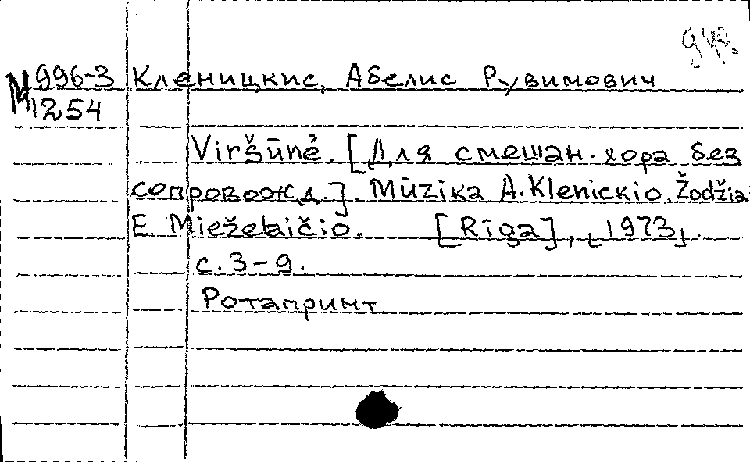 М996-3 Кленицкис, Абелис Рувимович
1254
Viršūnė. [Для смешан. хора без
сопровожд.]. Mūzika A. Klenickio. Žodžiai
E. Mieželaičio. [Rīga], [1973].
с. 3-9.
Ротапринт